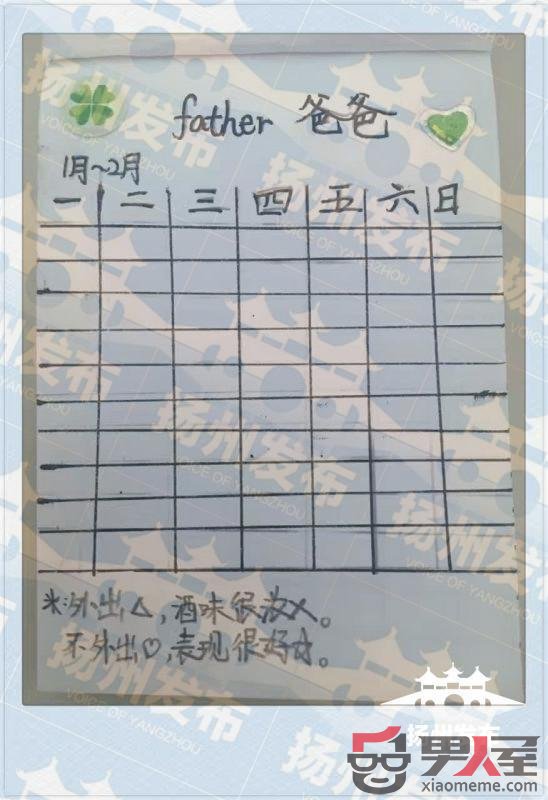 father 爸爸
1月~2月
一 二 三 四 五 六 日
※:外出△,酒味很浓×。
不外出♡,表现很好。
扬州发布
VOICE OF YANGZHOU
男人屋
xiaomeme.com